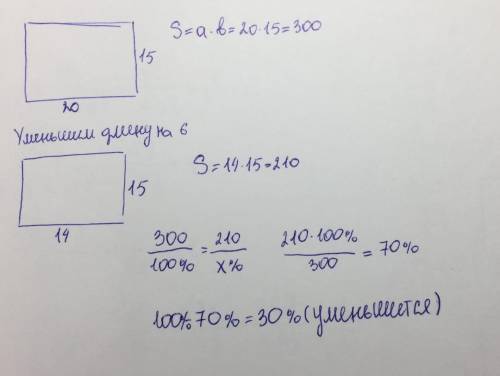 S=a·b=20·15=300
15
20
Уменьшим длину на 6
S=14·15=210
15
14
300/100% = 210/x%    210·100%/300 = 70%
100%-70%=30%(уменьшится)